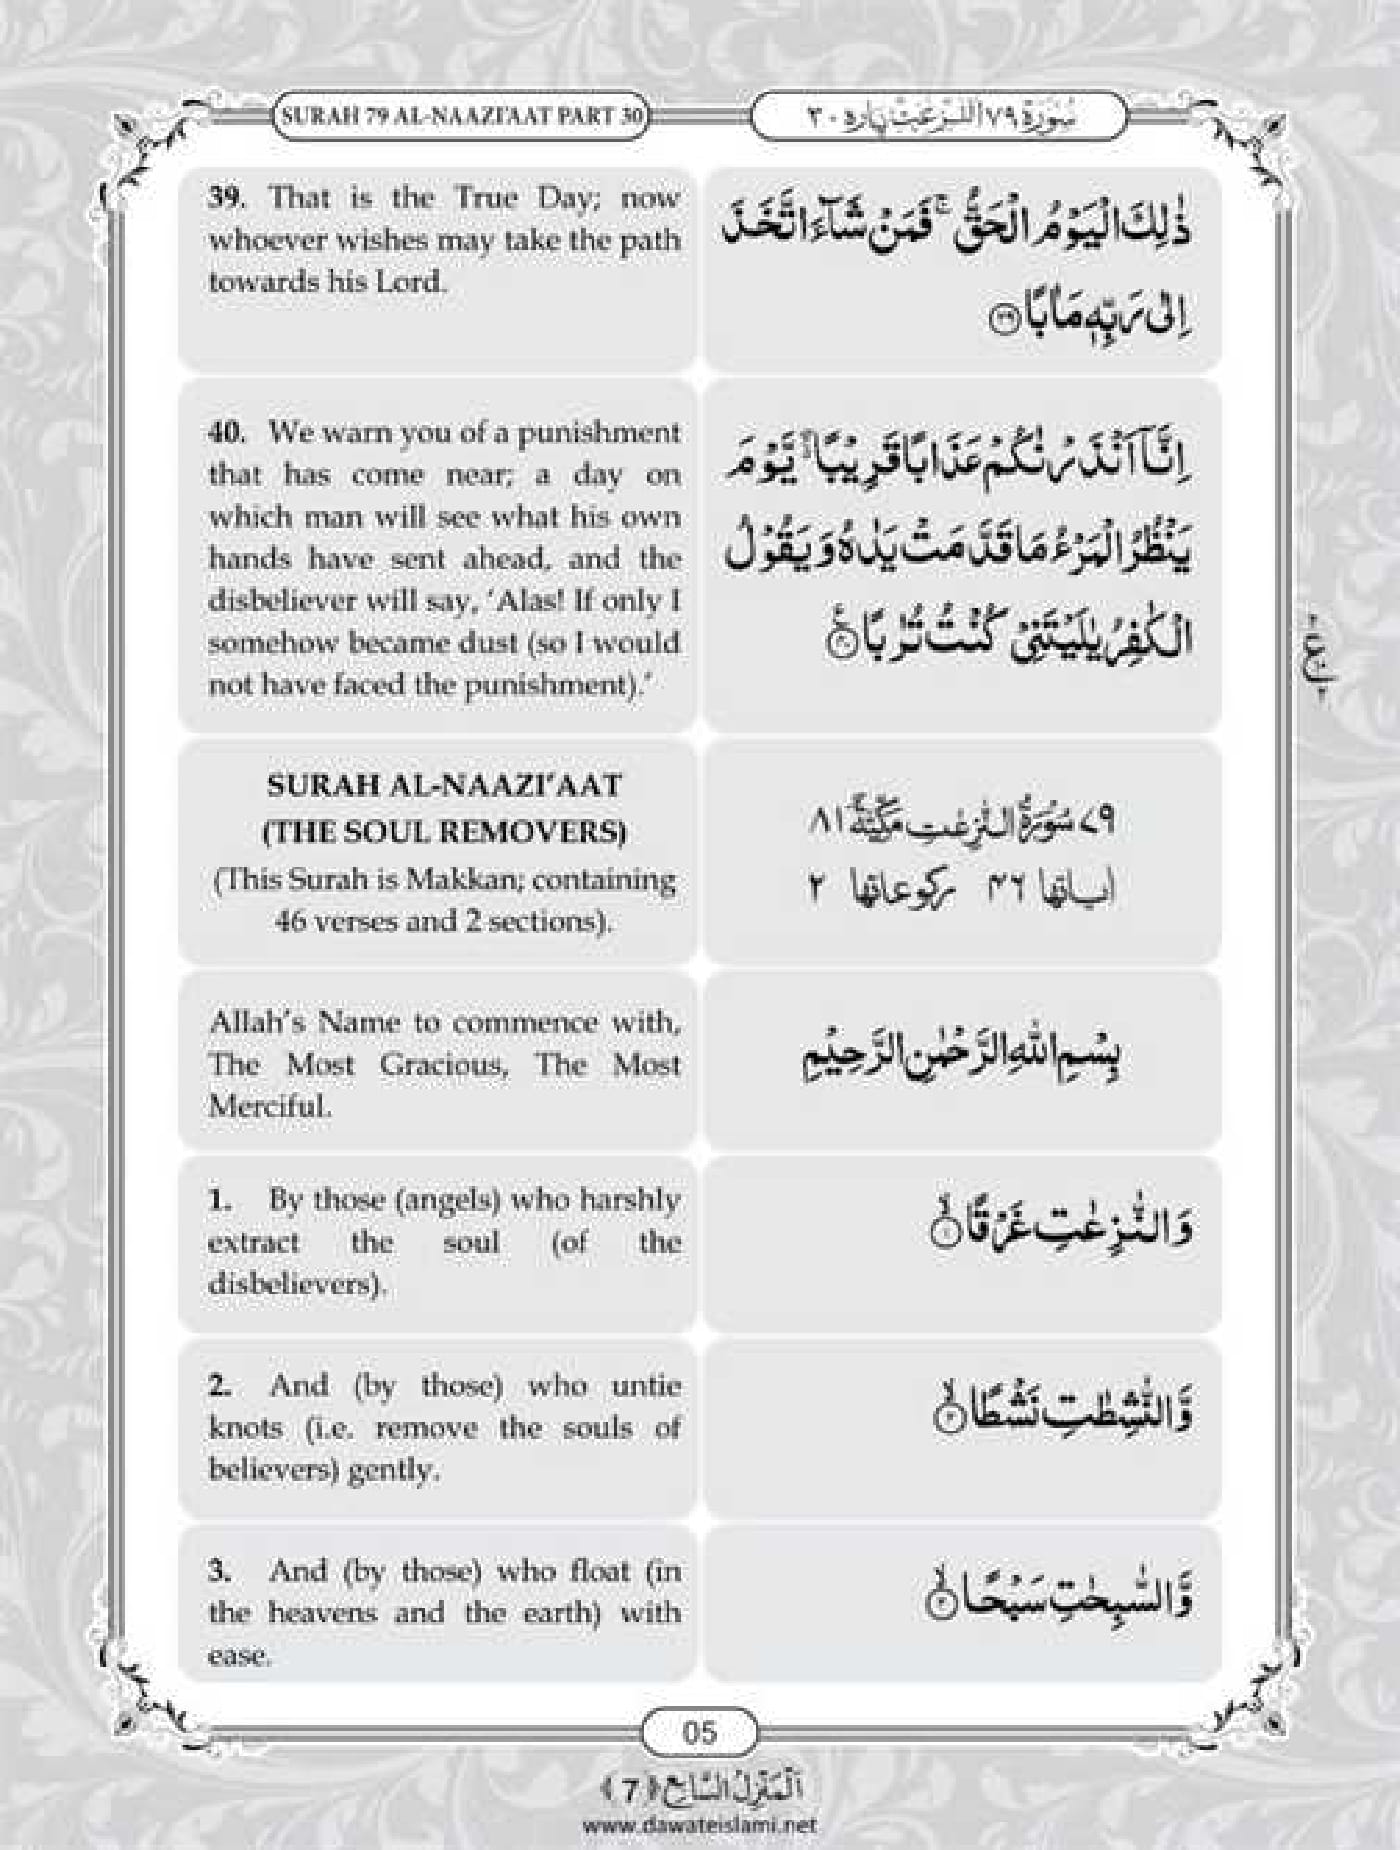 SURAH 79 AL-NAAZI'AAT PART 30
سُوْرَة ٧٩ النّٰزِعٰت پارہ ٣٠
39. That is the True Day; now
whoever wishes may take the path
towards his Lord.
ذٰلِكَ الْيَوْمُ الْحَقُّ ۚ فَمَنْ شَآءَ اتَّخَذَ
اِلٰى رَبِّهٖ مَاٰبًا ۝۳۹
40. We warn you of a punishment
that has come near; a day on
which man will see what his own
hands have sent ahead, and the
disbeliever will say, ‘Alas! If only I
somehow became dust (so I would
not have faced the punishment).’
اِنَّاۤ اَنْذَرْنٰكُمْ عَذَابًا قَرِيْبًا ۖۚ يَّوْمَ
يَنْظُرُ الْمَرْءُ مَا قَدَّمَتْ يَدٰهُ وَيَقُوْلُ
الْكٰفِرُ يٰلَيْتَنِيْ كُنْتُ تُرٰبًا ۝۴۰
SURAH AL-NAAZI’AAT
(THE SOUL REMOVERS)
(This Surah is Makkan; containing
46 verses and 2 sections).
٧٩ سُوْرَةُ النّٰزِعٰتِ مَكِّيَّةٌ ٨١
اٰیاتها ٤٦ رکوعاتها ٢
Allah’s Name to commence with,
The Most Gracious, The Most
Merciful.
بِسْمِ اللهِ الرَّحْمٰنِ الرَّحِيْمِ
1. By those (angels) who harshly
extract the soul (of the
disbelievers).
وَالنّٰزِعٰتِ غَرْقًا ۝۱
2. And (by those) who untie
knots (i.e. remove the souls of
believers) gently.
وَّالنّٰشِطٰتِ نَشْطًا ۝۲
3. And (by those) who float (in
the heavens and the earth) with
ease.
وَّالسّٰبِحٰتِ سَبْحًا ۝۳
05
اَلْمَنْزِلُ السَّابِع ﴿7﴾
www.dawateislami.net